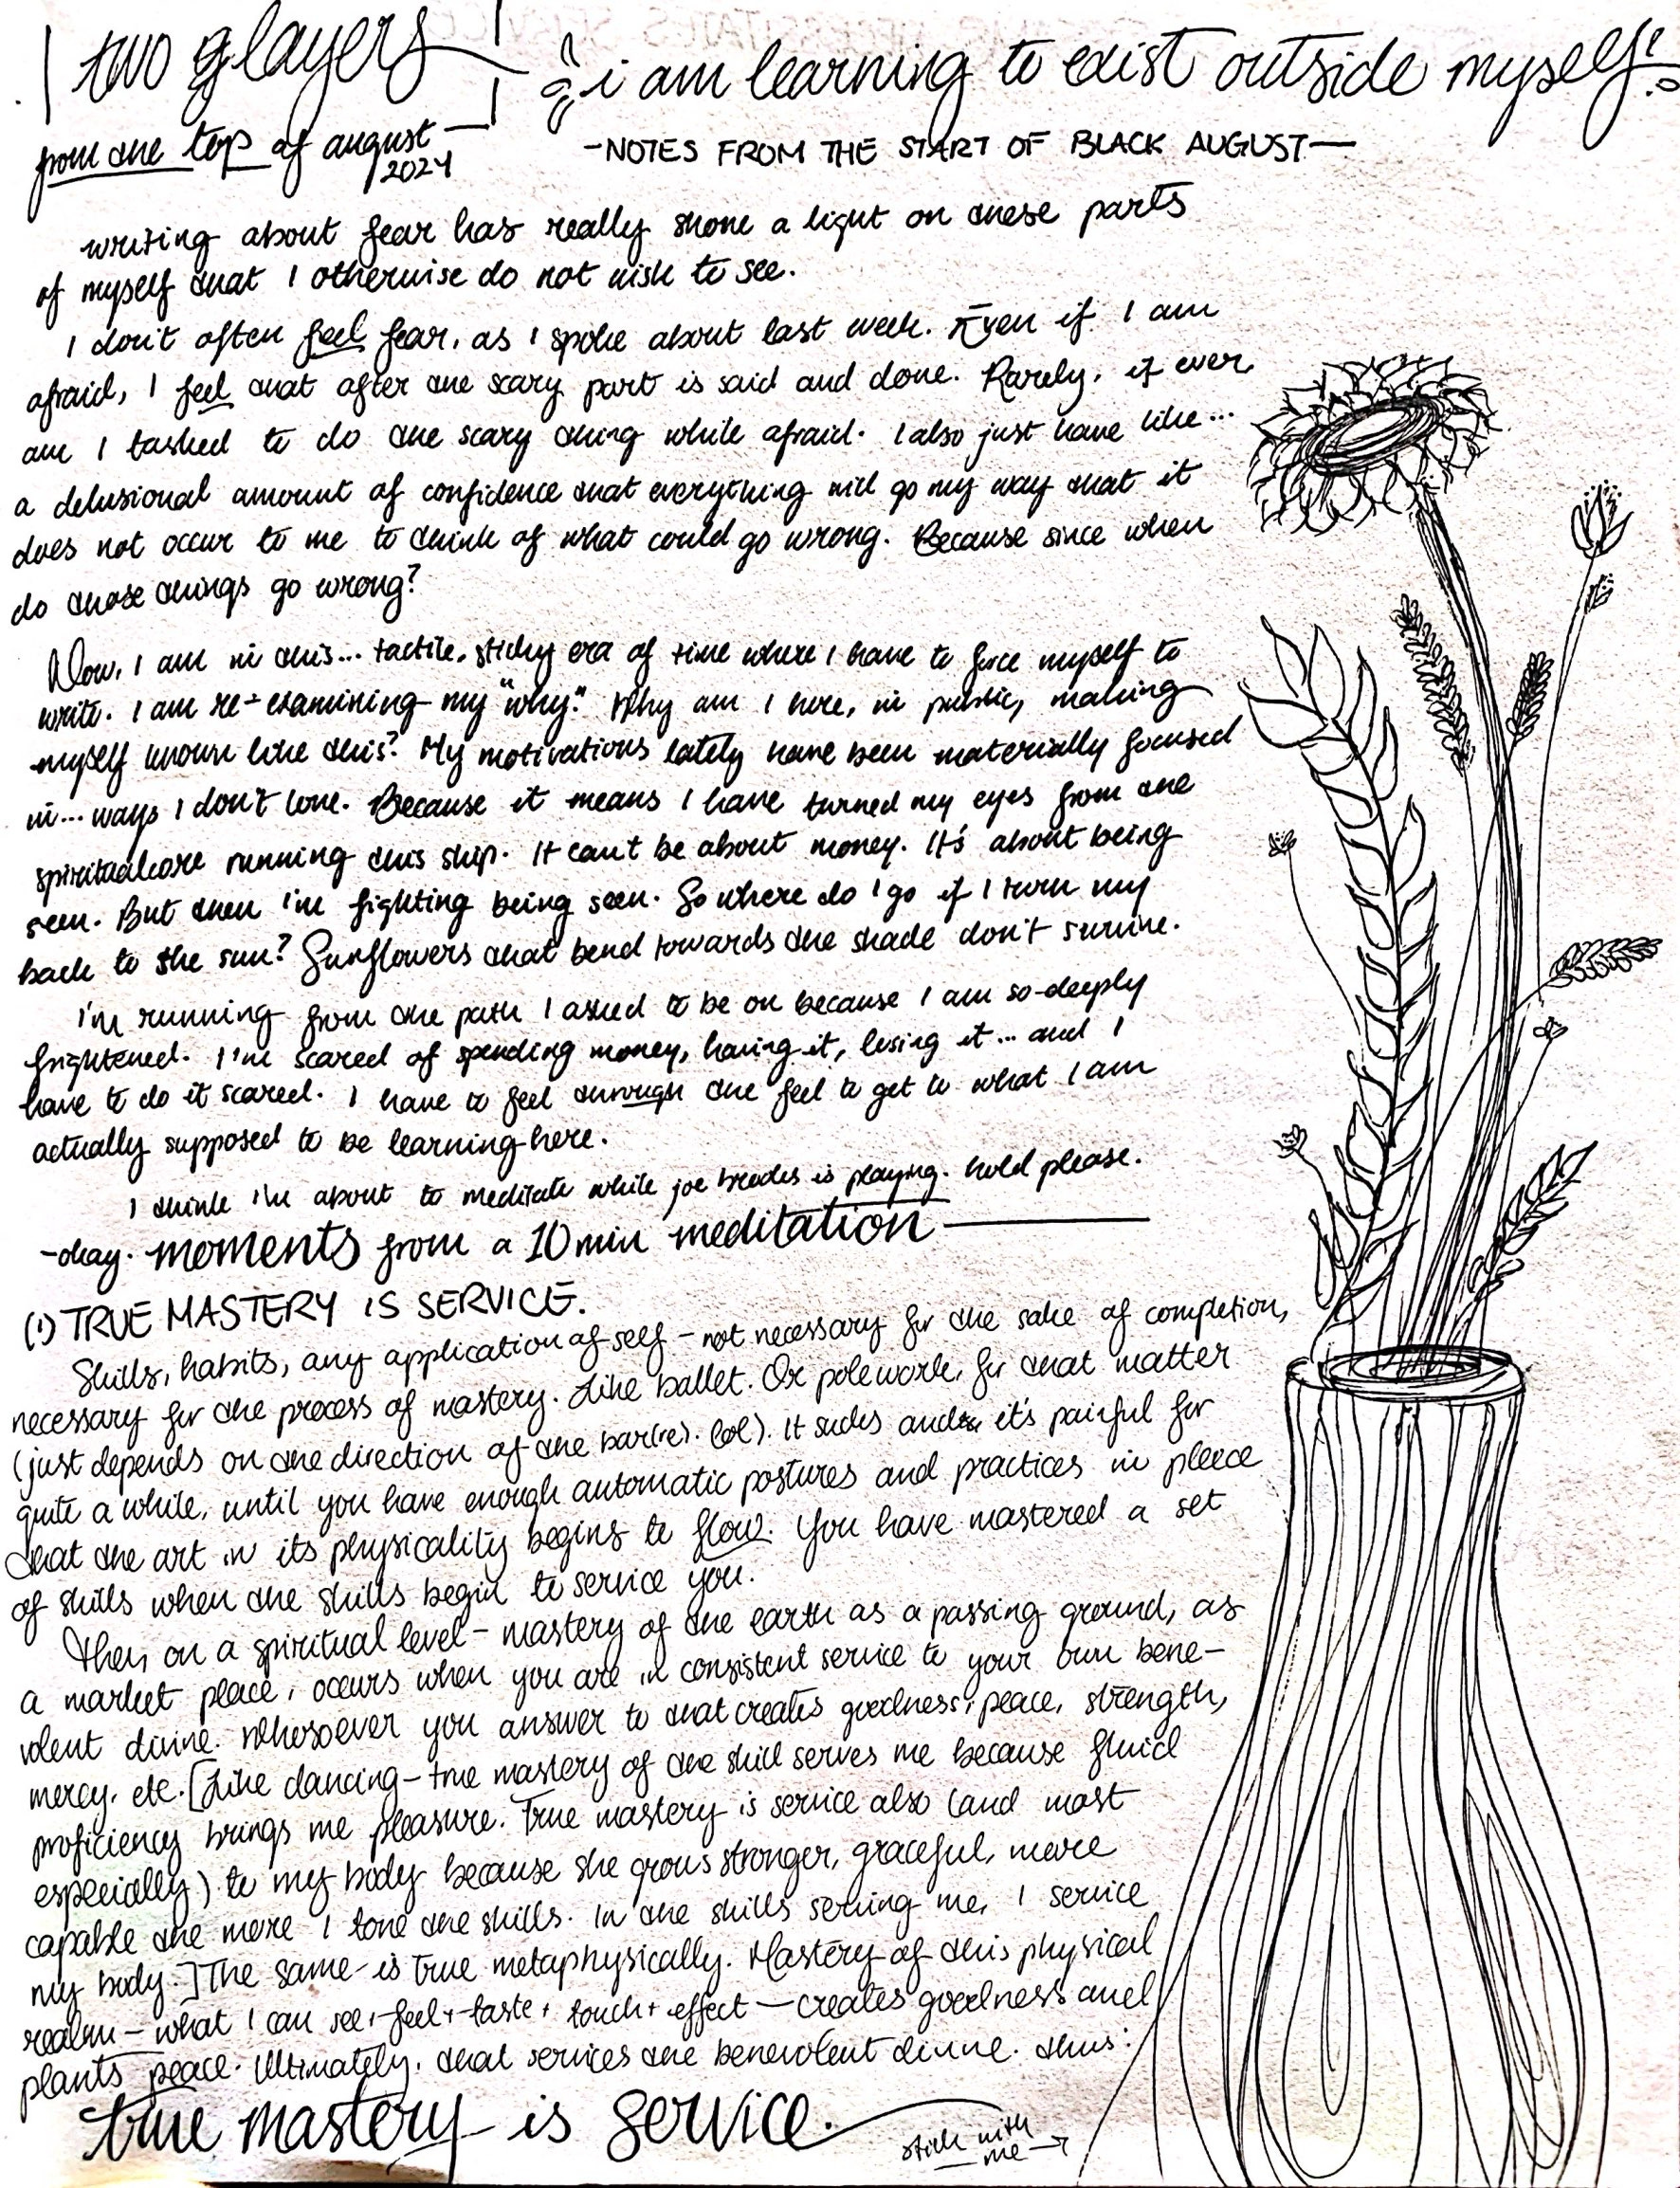 two players
from the top of august
2024
i am learning to exist outside myself!
-NOTES FROM THE START OF BLACK AUGUST-
writing about fear has really shone a light on these parts
of myself that I otherwise do not wish to see.
I don't often feel fear, as I spoke about last week. Even if I am
afraid, I feel that after the scary part is said and done. Rarely, if ever
am I tasked to do the scary thing while afraid. I also just have like...
a delusional amount of confidence that everything will go my way that it
does not occur to me to think of what could go wrong. Because since when
do those things go wrong?
Now, I am in this... tactile, sticky era of time where I have to force myself to
write. I am re-examining my "why." Why am I here, in public, making
myself known like this? My motivations lately have been materially focused
in... ways I don't love. Because it means I have turned my eyes from the
spiritual core running this ship. It can't be about money. It's about being
seen. But then i'm fighting being seen. So where do I go if I turn my
back to the sun? Sunflowers that bend towards the shade don't survive.
i'm running from the path I asked to be on because I am so deeply
frightened. I'm scared of spending money, having it, losing it... and I
have to do it scared. I have to feel through the feel to get to what I am
actually supposed to be learning here.
I think I'm about to meditate while joe is playing. hold please.
-okay. moments from a 10 min meditation
(1) TRUE MASTERY IS SERVICE.
Skills, habits, any application of self - not necessary for the sake of completion,
necessary for the process of mastery. Like ballet. Or polework, for that matter
(just depends on the direction of the bar(re). lol). It sucks and it's painful for
quite a while, until you have enough automatic postures and practices in pleece
that the art in its physicality begins to flow. You have mastered a set
of skills when the skills begin to service you.
Then, on a spiritual level - mastery of the earth as a passing ground, as
a market place, occurs when you are in consistent service to your own bene-
volent divine. Whosoever you answer to that creates goodness, peace, strength,
mercy, etc. [Like dancing - true mastery of the skill serves me because fluid
proficiency brings me pleasure. True mastery is service also (and most
especially) to my body because she grows stronger, graceful, more
capable the more I tone the skills. In the skills serving me, I service
my body.] The same is true metaphysically. Mastery of this physical
realm - what I can see + feel + taste + touch + effect - creates goodness and
plants peace. Ultimately, that services the benevolent divine. thus:
true mastery is service.
stick with
me →